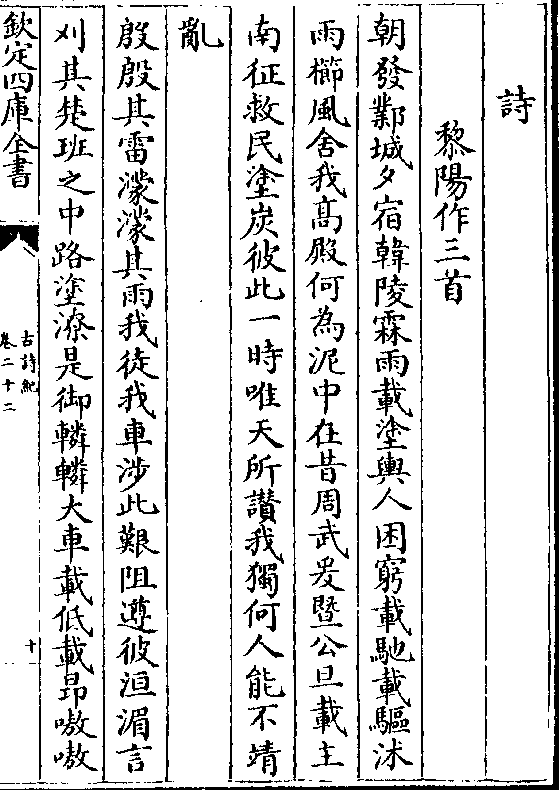 詩
黎陽作三首
朝發鄴城夕宿韓陵霖雨載塗輿人困窮載馳載驅沐
雨櫛風舍我髙殿何為泥中在昔周武爰暨公旦載主
南征救民塗炭彼此一時唯天所讃我獨何人能不靖
亂
殷殷其雷濛濛其雨我徒我車涉此艱阻遵彼洹湄言
刈其楚班之中路塗潦是御轔轔大車載低載昻嗷嗷
欽定四庫全書
古詩紀
卷二十二
十